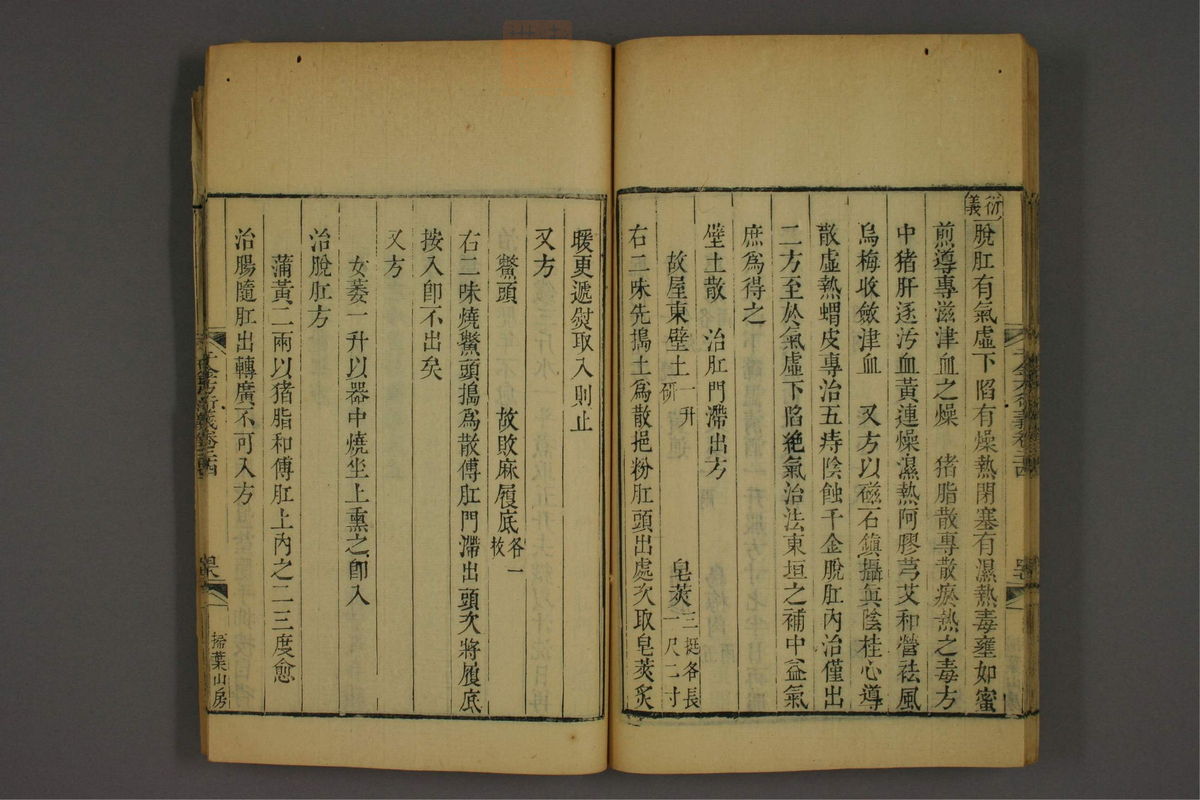 衍義脫肛有氣虛下陷有燥熱閉塞有濕熱毒壅如蜜
煎導專滋津血之燥　豬脂散專散瘀熱之毒方
中猪肝逐汚血黃連燥濕熱阿膠芎艾和營祛風
烏梅收斂津血　又方以磁石鎮攝眞陰桂心導
散虛熱蝟皮專治五痔陰蝕千金脫肛內治僅出
二方至於氣虛下陷絶氣治法東垣之補中益氣
庶爲得之
壁土散　治肛門滯出方
故屋東壁土一升研　皂莢三挺各長一尺二寸
右二味先搗土爲散挹粉肛頭出處次取皂莢炙
暖更遞熨取入則止
又方
鱉頭　故敗麻履底各一枚
右二味燒鱉頭搗爲散傅肛門滯出頭次將履底
按入卽不出矣
又方
女萎一升以器中燒坐上熏之卽入
治脫肛方
蒲黃二兩以猪脂和傅肛上內之二三度愈
治腸隨肛出轉廣不可入方
千金方衍義卷二十四
掃葉山房